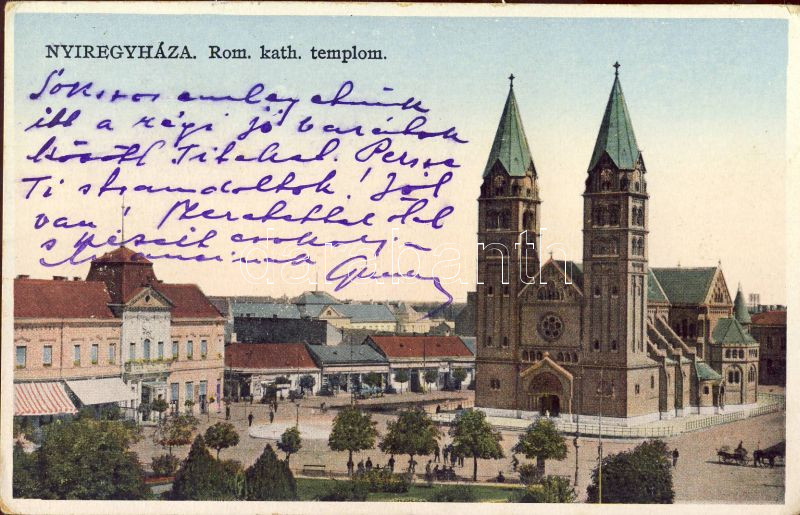 NYIREGYHÁZA. Rom. kath. templom.
Sokszor emlegetünk
itt a régi jó barátok
között Titeket. Persze
Ti strandoltok! Jól
van! Szeretettel ölel
s
csókolja
darabanth